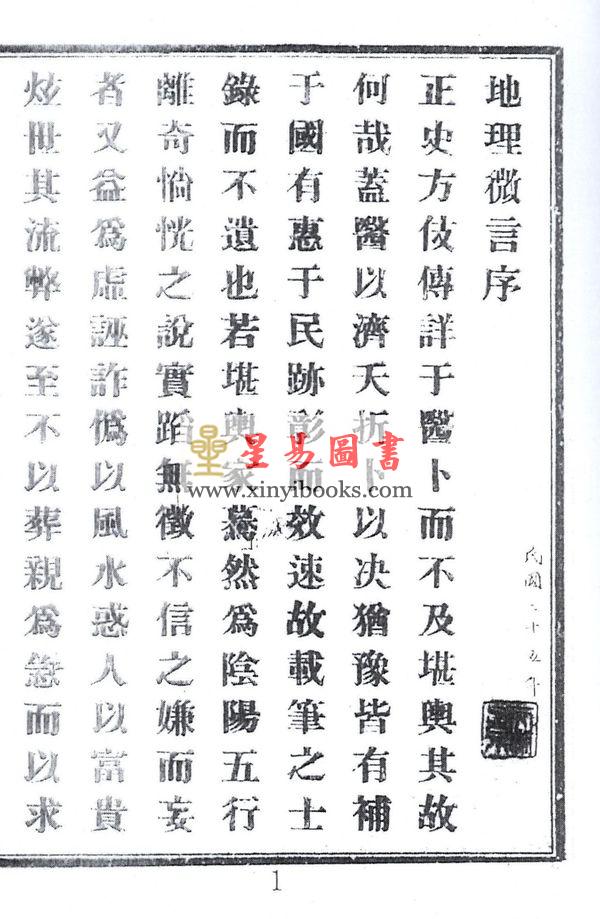 地理微言序
民國二十五年
正史方伎傳詳于醫卜而不及堪輿其故
何哉蓋醫以濟夭折卜以决猶豫皆有補
于國有惠于民跡彰而效速故載筆之士
錄而不遺也若堪輿家然爲陰陽五行
離奇惝恍之說實蹈無徵不信之嫌而妄
者又益爲虛誣詐僞以風水惑人以富貴
炫世其流弊遂至不以葬親爲急而以求
星易圖書
www.xinyibooks.com
1